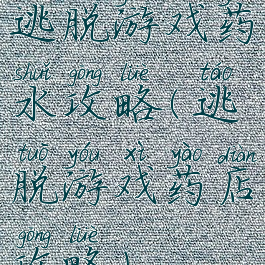 逃脱游戏药
shuǐ gōng lüè táo
水攻略(逃
tuō yóu xì yào diàn
脱游戏药店
gōng lüè
攻略)